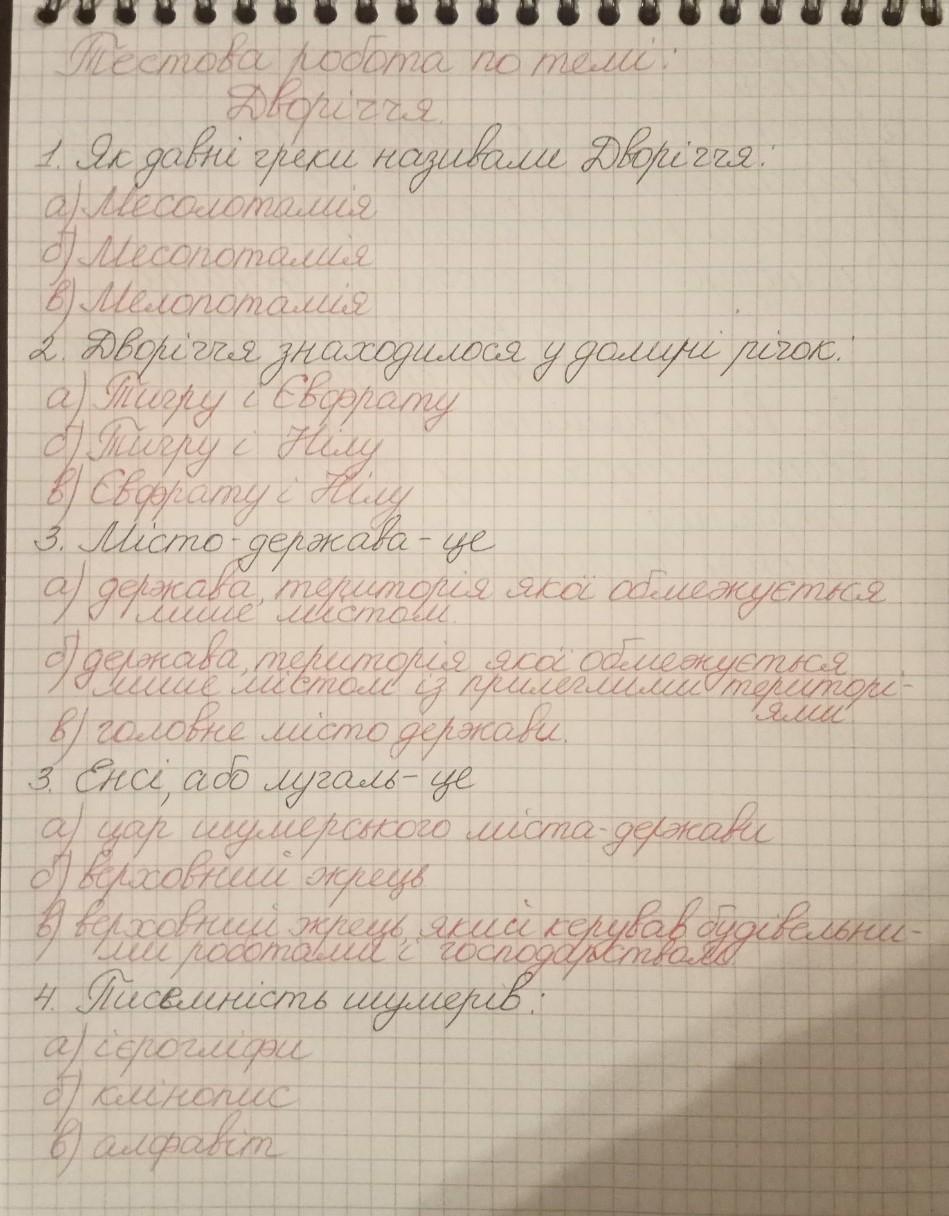 Тестова робота по темі:
Дворіччя.
1. Як давні греки називали Дворіччя:
а) Месолотамія
б) Месопотамія
в) Мелопотамія
2. Дворіччя знаходилося у долині річок:
а) Тигру і Євфрату
б) Тигру і Нілу
в) Євфрату і Нілу
3. Місто-держава - це
а) держава, територія якої обмежується
лише містом.
б) держава, територія якої обмежується
лише містом із прилеглими територі-
ями
в) головне місто держави.
3. Енсі, або лугаль - це
а) цар шумерського міста-держави
б) верховний жрець
в) верховний жрець, який керував будівельни-
ми роботами і господарством
4. Писемність шумерів:
а) ієрогліфи
б) клінопис
в) алфавіт